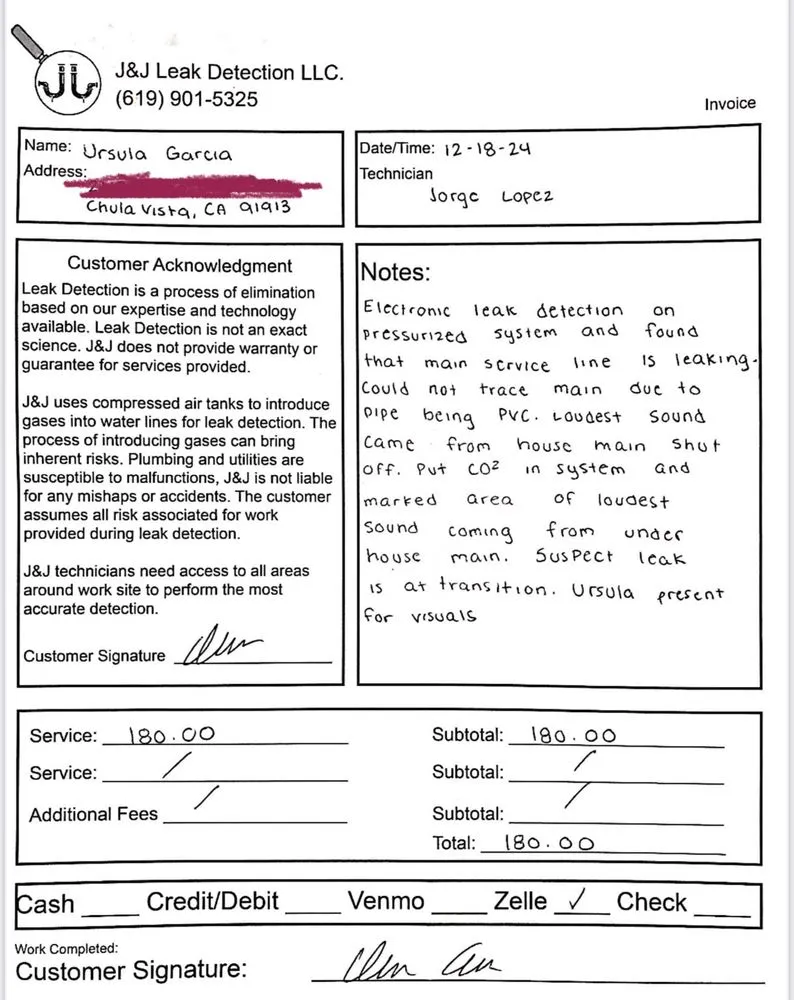 J&J Leak Detection LLC.
(619) 901-5325
Invoice
Name: Ursula Garcia
Address:
Chula Vista, CA 91913
Date/Time: 12-18-24
Technician
Jorge Lopez
Customer Acknowledgment
Leak Detection is a process of elimination
based on our expertise and technology
available. Leak Detection is not an exact
science. J&J does not provide warranty or
guarantee for services provided.
J&J uses compressed air tanks to introduce
gases into water lines for leak detection. The
process of introducing gases can bring
inherent risks. Plumbing and utilities are
susceptible to malfunctions, J&J is not liable
for any mishaps or accidents. The customer
assumes all risk associated for work
provided during leak detection.
J&J technicians need access to all areas
around work site to perform the most
accurate detection.
Customer Signature
Notes:
Electronic leak detection on
pressurized system and found
that main service line is leaking.
Could not trace main due to
pipe being PVC. Loudest sound
came from house main shut
off. Put CO² in system and
marked area of loudest
sound coming from under
house main. Suspect leak
is at transition. Ursula present
for visuals
Service: 180.00
Service: /
Additional Fees /
Subtotal: 180.00
Subtotal: /
Subtotal: /
Total: 180.00
Cash Credit/Debit Venmo Zelle ✓ Check
Work Completed:
Customer Signature: